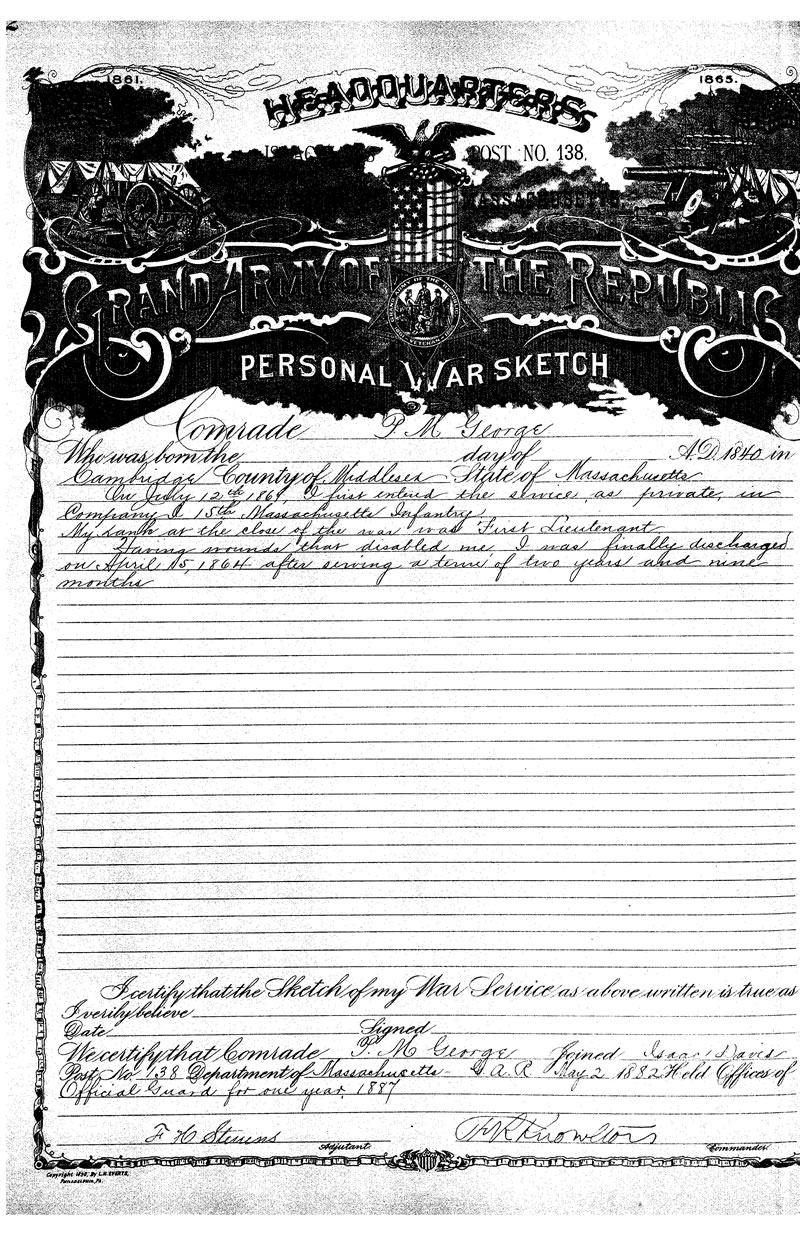 1861.
1865.
HEADQUARTERS
POST NO. 138.
MASSACHUSETTS.
GRAND ARMY OF THE REPUBLIC
VETERANS
PERSONAL WAR SKETCH
Comrade P. M George
Who was born the day of A.D. 1840 in
Cambridge County of Middlesex State of Massachusetts
On July 12th 1861, I first entered the service, as private, in
Company I 15th Massachusetts Infantry.
My rank at the close of the war was First Lieutenant
Having wounds that disabled me, I was finally discharged
on April 15, 1864 after serving a term of two years and nine
months
I certify that the Sketch of my War Service as above written is true as
I verily believe
Date Signed
We certify that Comrade P. M George Joined Isaac Davis
Post No. 138 Department of Massachusetts - G A. R May 2 1882 Held Offices of
Official Guard for one year. 1887
F H Stevens F R Knowlton
Adjutant Commander
Copyright 1890, By L.H. EVERTS,
PHILADELPHIA, PA.